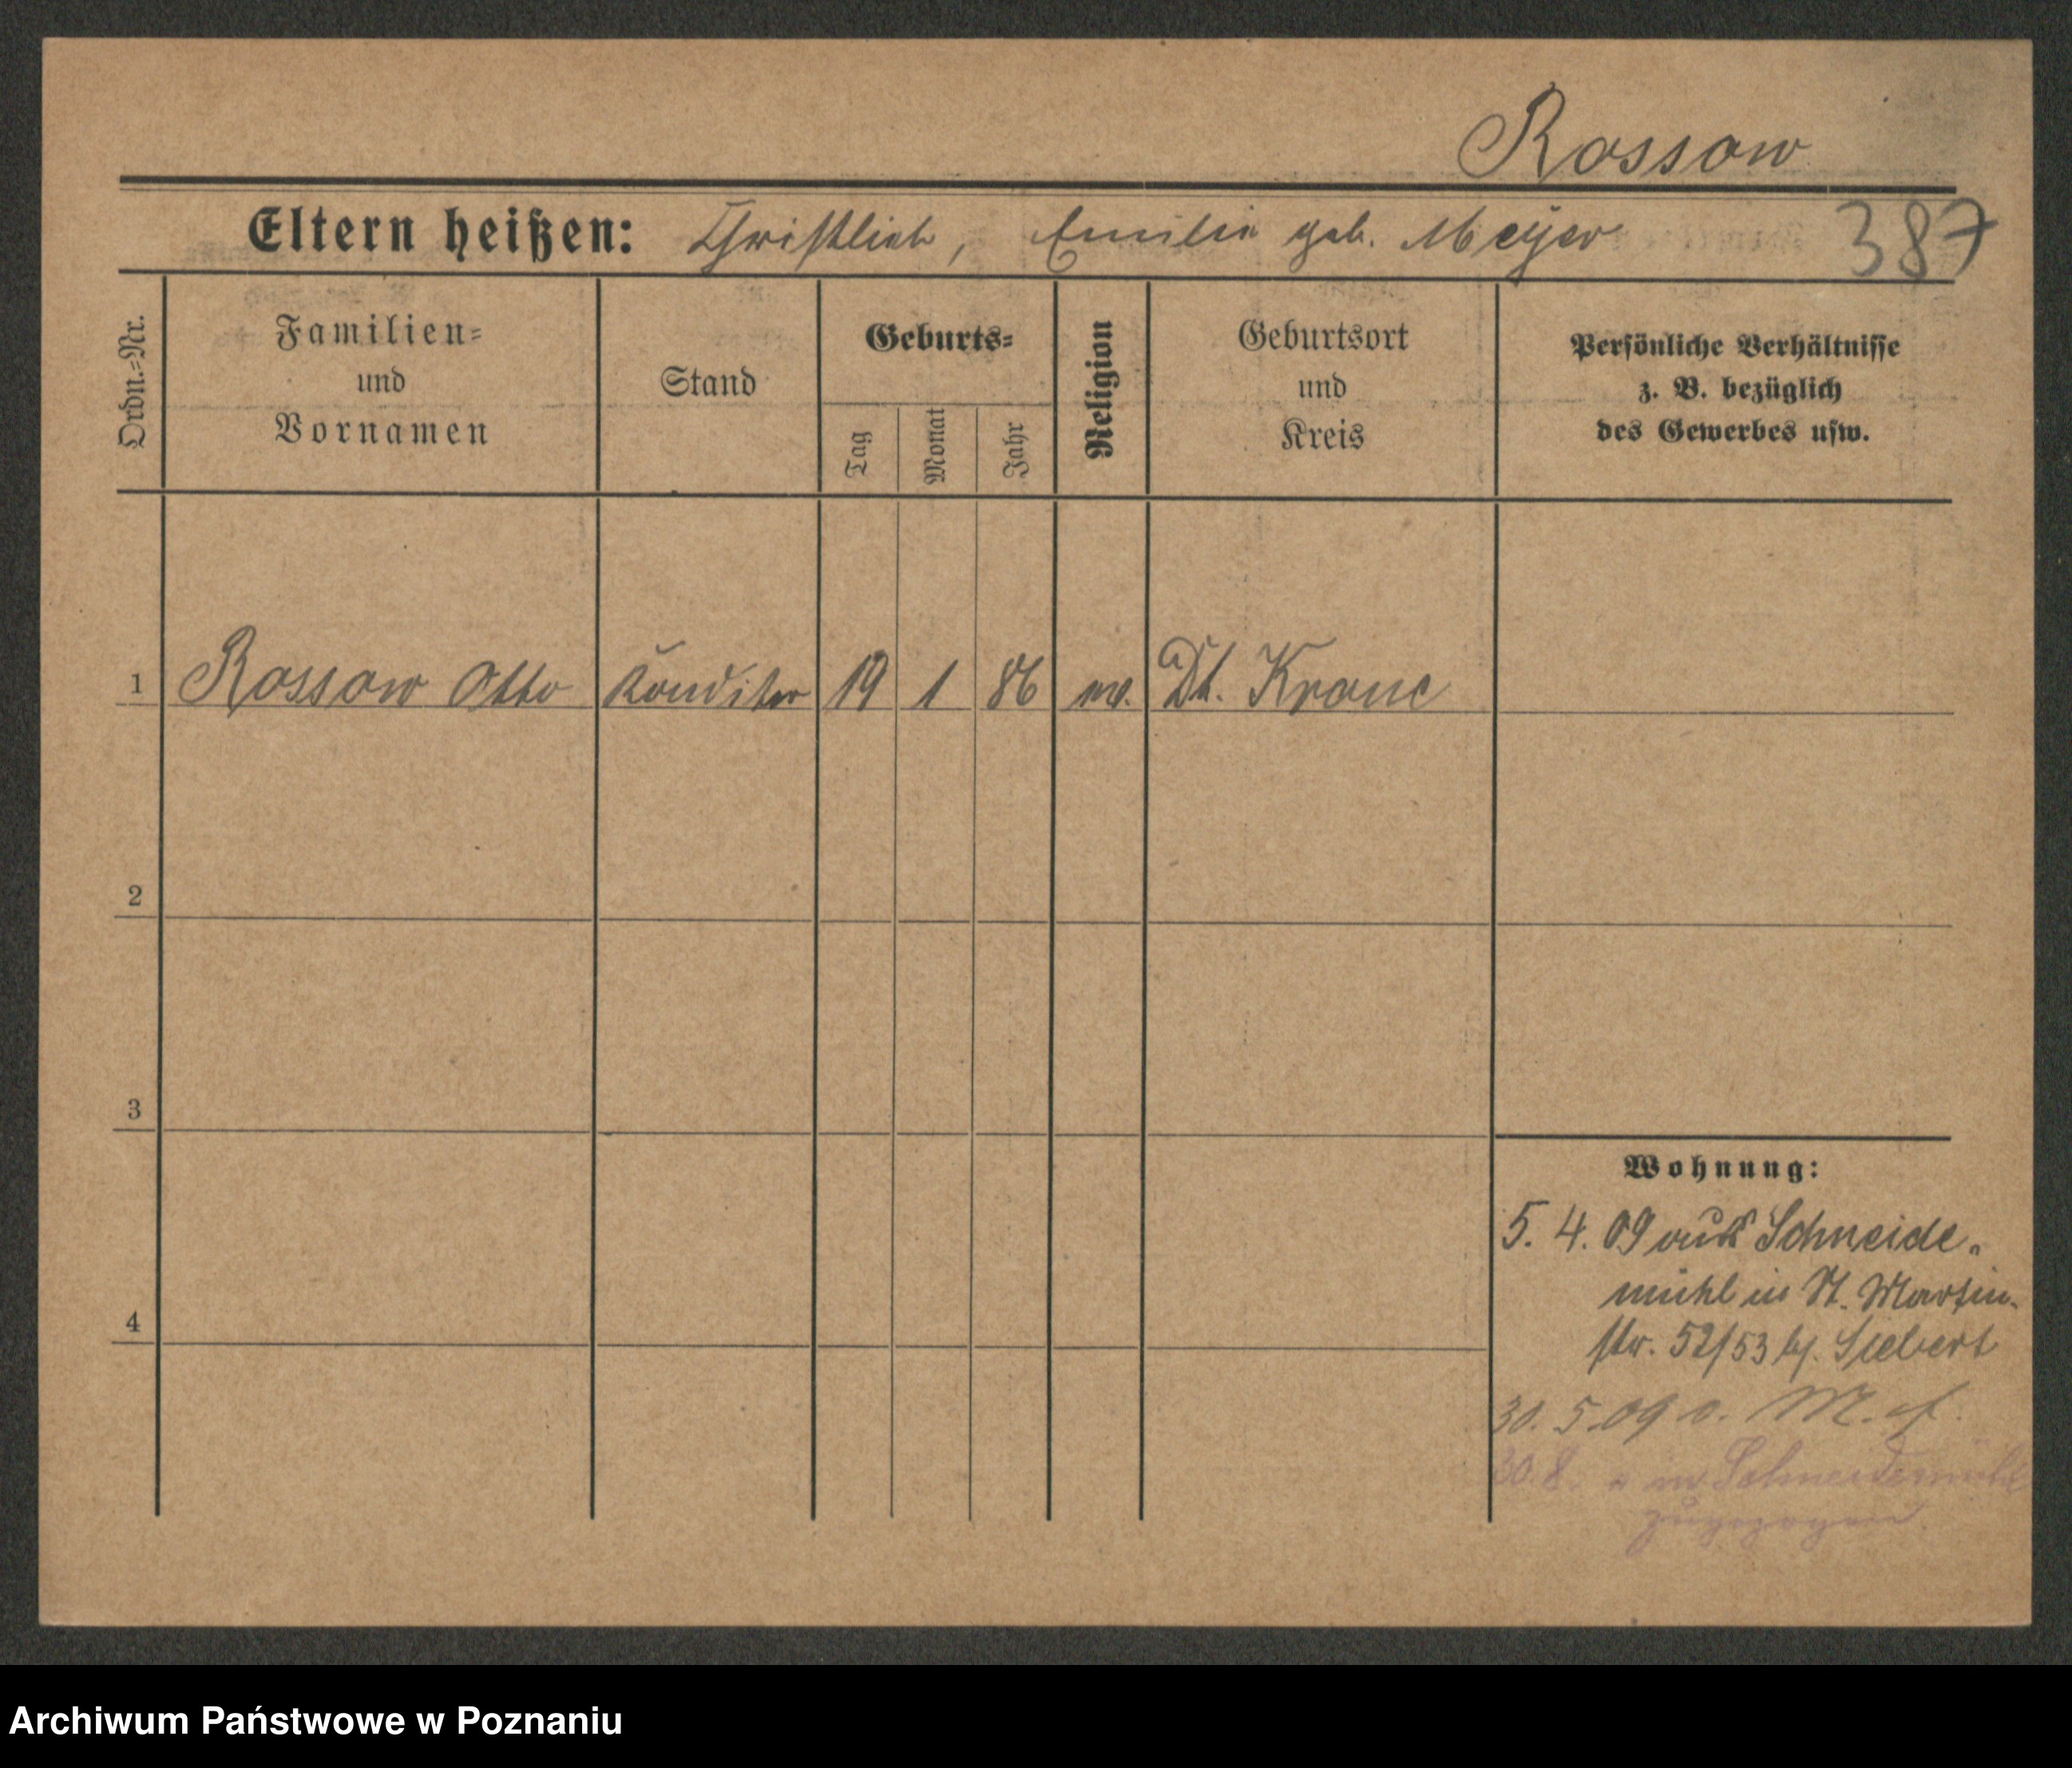 Rossow
Eltern heißen: Christlieb, Emilie geb. Meyer 387
Ordn.-Nr.
Familien-
und
Vornamen
Stand
Geburts-
Tag
Monat
Jahr
Religion
Geburtsort
und
Kreis
Persönliche Verhältnisse
z. B. bezüglich
des Gewerbes usw.
1 Rossow Otto Konditor 19 1 86 ev. Dt. Krone
2
3
4
Wohnung:
5. 4. 09 aus Schneide-
mühl in St. Martin-
str. 52/53 bei Siebert
30. 5. 09
30. 8. in Schneidemühl
zugezogen
Archiwum Państwowe w Poznaniu